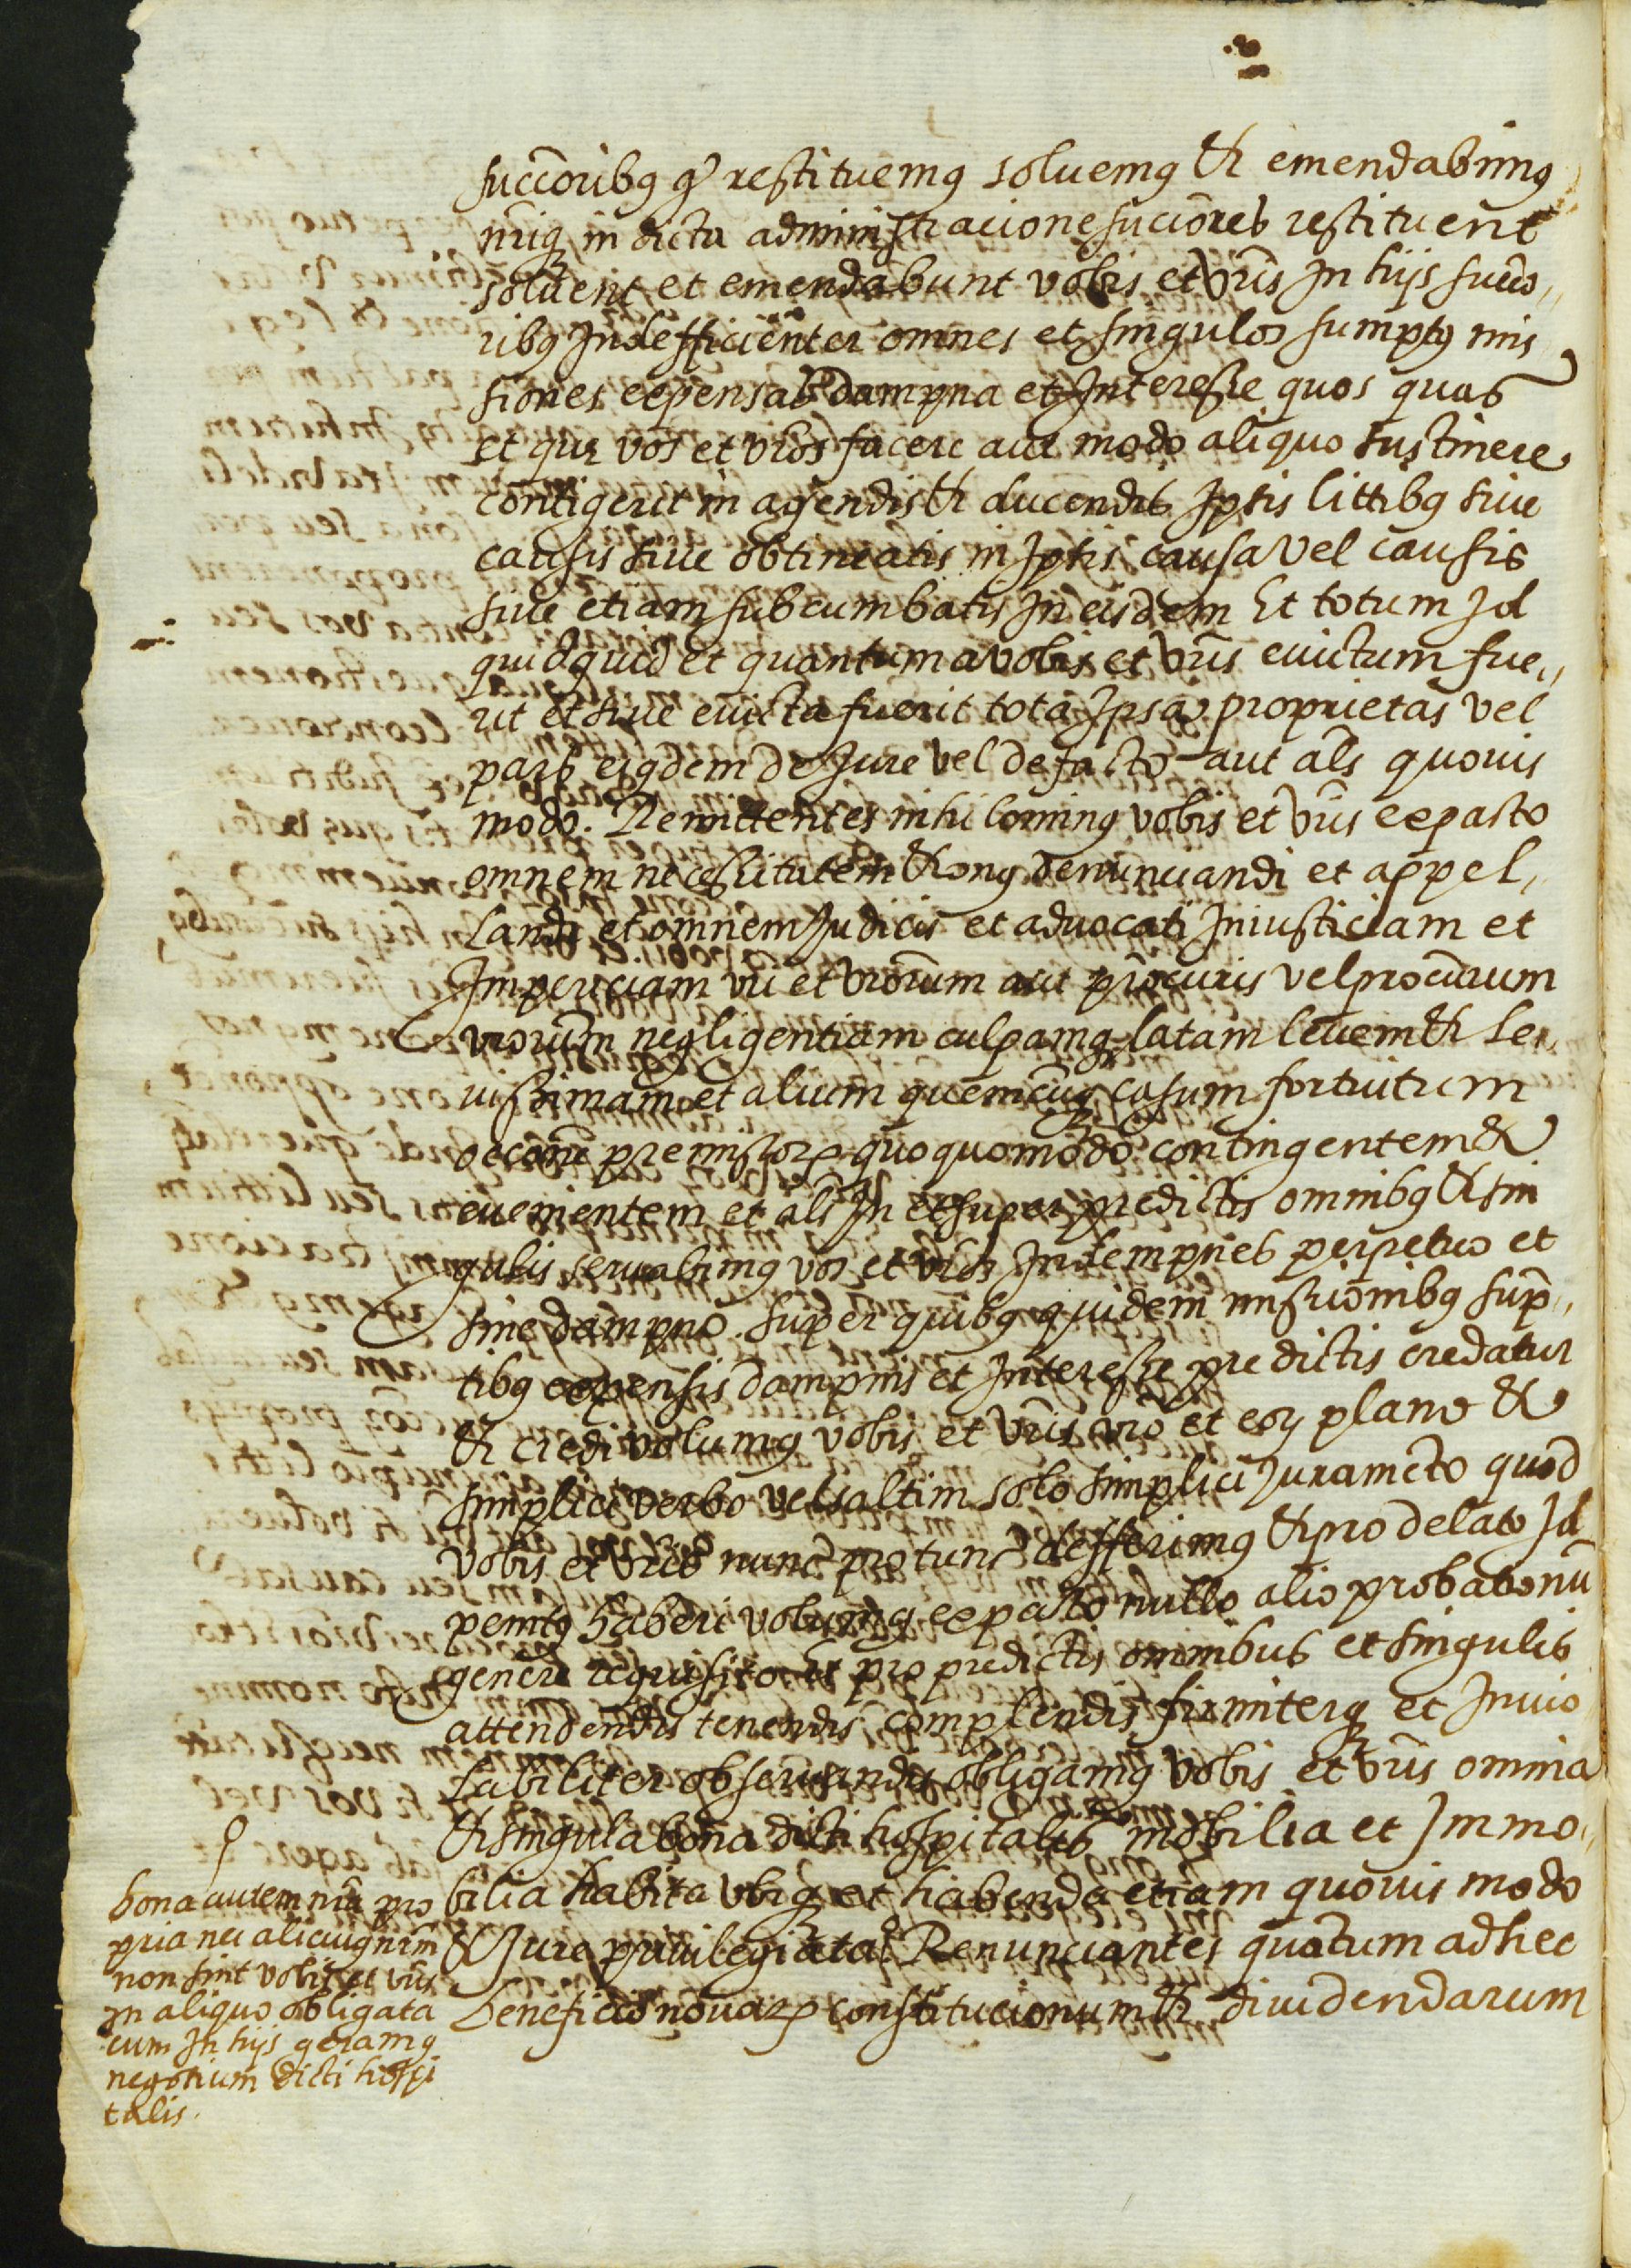 succoribꝯ qꝫ restituemꝯ soluemꝯ & emendabimꝯ
nr̄iqꝫ in dicta administracione succores restituent
soluent et emendabunt vobis et vr̄is In hijs succo„
ribꝯ Indefficienter omnes et singulos sumptꝯ mis
siones expensas dampna et Interesse quos quas
et que vos et vr̄os facere aut modo aliquo sustinere
contigerit in agendis & ducendis Ipsis littibꝯ siue
causis siue obtineatis in Ipsis causa vel causis
siue etiam subcumbatis In eisdem Et totum Id
quidquid et quantum a vobis et vr̄is euictum fue„
rit et siue euicta fuerit tota Ipsa proprietas vel
pars eiꝯdem de Iure vel de facto aut als̄ quouis
modo. Remittentes nihilominꝯ vobis et vr̄is ex pacto
omnem necessitatem & onꝯ denunciandi et appel„
landi et omnem Judicis et aduocati Iniusticiam et
Impericiam vr̄i et vr̄orum aut procuris vel procurum
vr̄orum negligentiam culpamqꝫ latam leuem & le„
uissimam et alium quemcūqꝫ casum fortuitum
occōne premissoꝝ quoquomodo contingentem &
euenientem et als̄ In et super predictis omnibꝯ & sin
gulis seruabimꝯ vos et vr̄os Indempnes perpetuo et
sine dampno. Super quibꝯ quidem missionibꝯ sūp„
tibꝯ expensis dampnis et Interesse predictis credatur
& credi volumꝯ vobis et vr̄is vr̄o et eoꝝ plano &
simplici verbo vel saltim solo simplici Juramēto quod
vobis et vr̄is nunc pro tunc defferimꝯ & pro delato Id
penitꝯ haberi volumꝯ ex pacto nullo alio probationū
genere requisito. Et pro predictis omnibus et singulis
attendendis tenendis complendis firmiterqꝫ et Inuio
labiliter obseruandis obligamꝯ vobis et vr̄is omnia
& singula bona dicti hospitalis mobilia et Immo„
bilia habita vbiqꝫ et habenda etiam quouis modo
& Iure priuilegiata Renunciantes quātum ad hec
beneficio nouaꝝ constitucionum & diuidendarum
bona autem nr̄a pro
pria nec alicuiꝯ nr̄m
non sint vobis et vr̄is
In aliquo obligata
cum In hijs geramꝯ
negotium dicti hospi
talis.